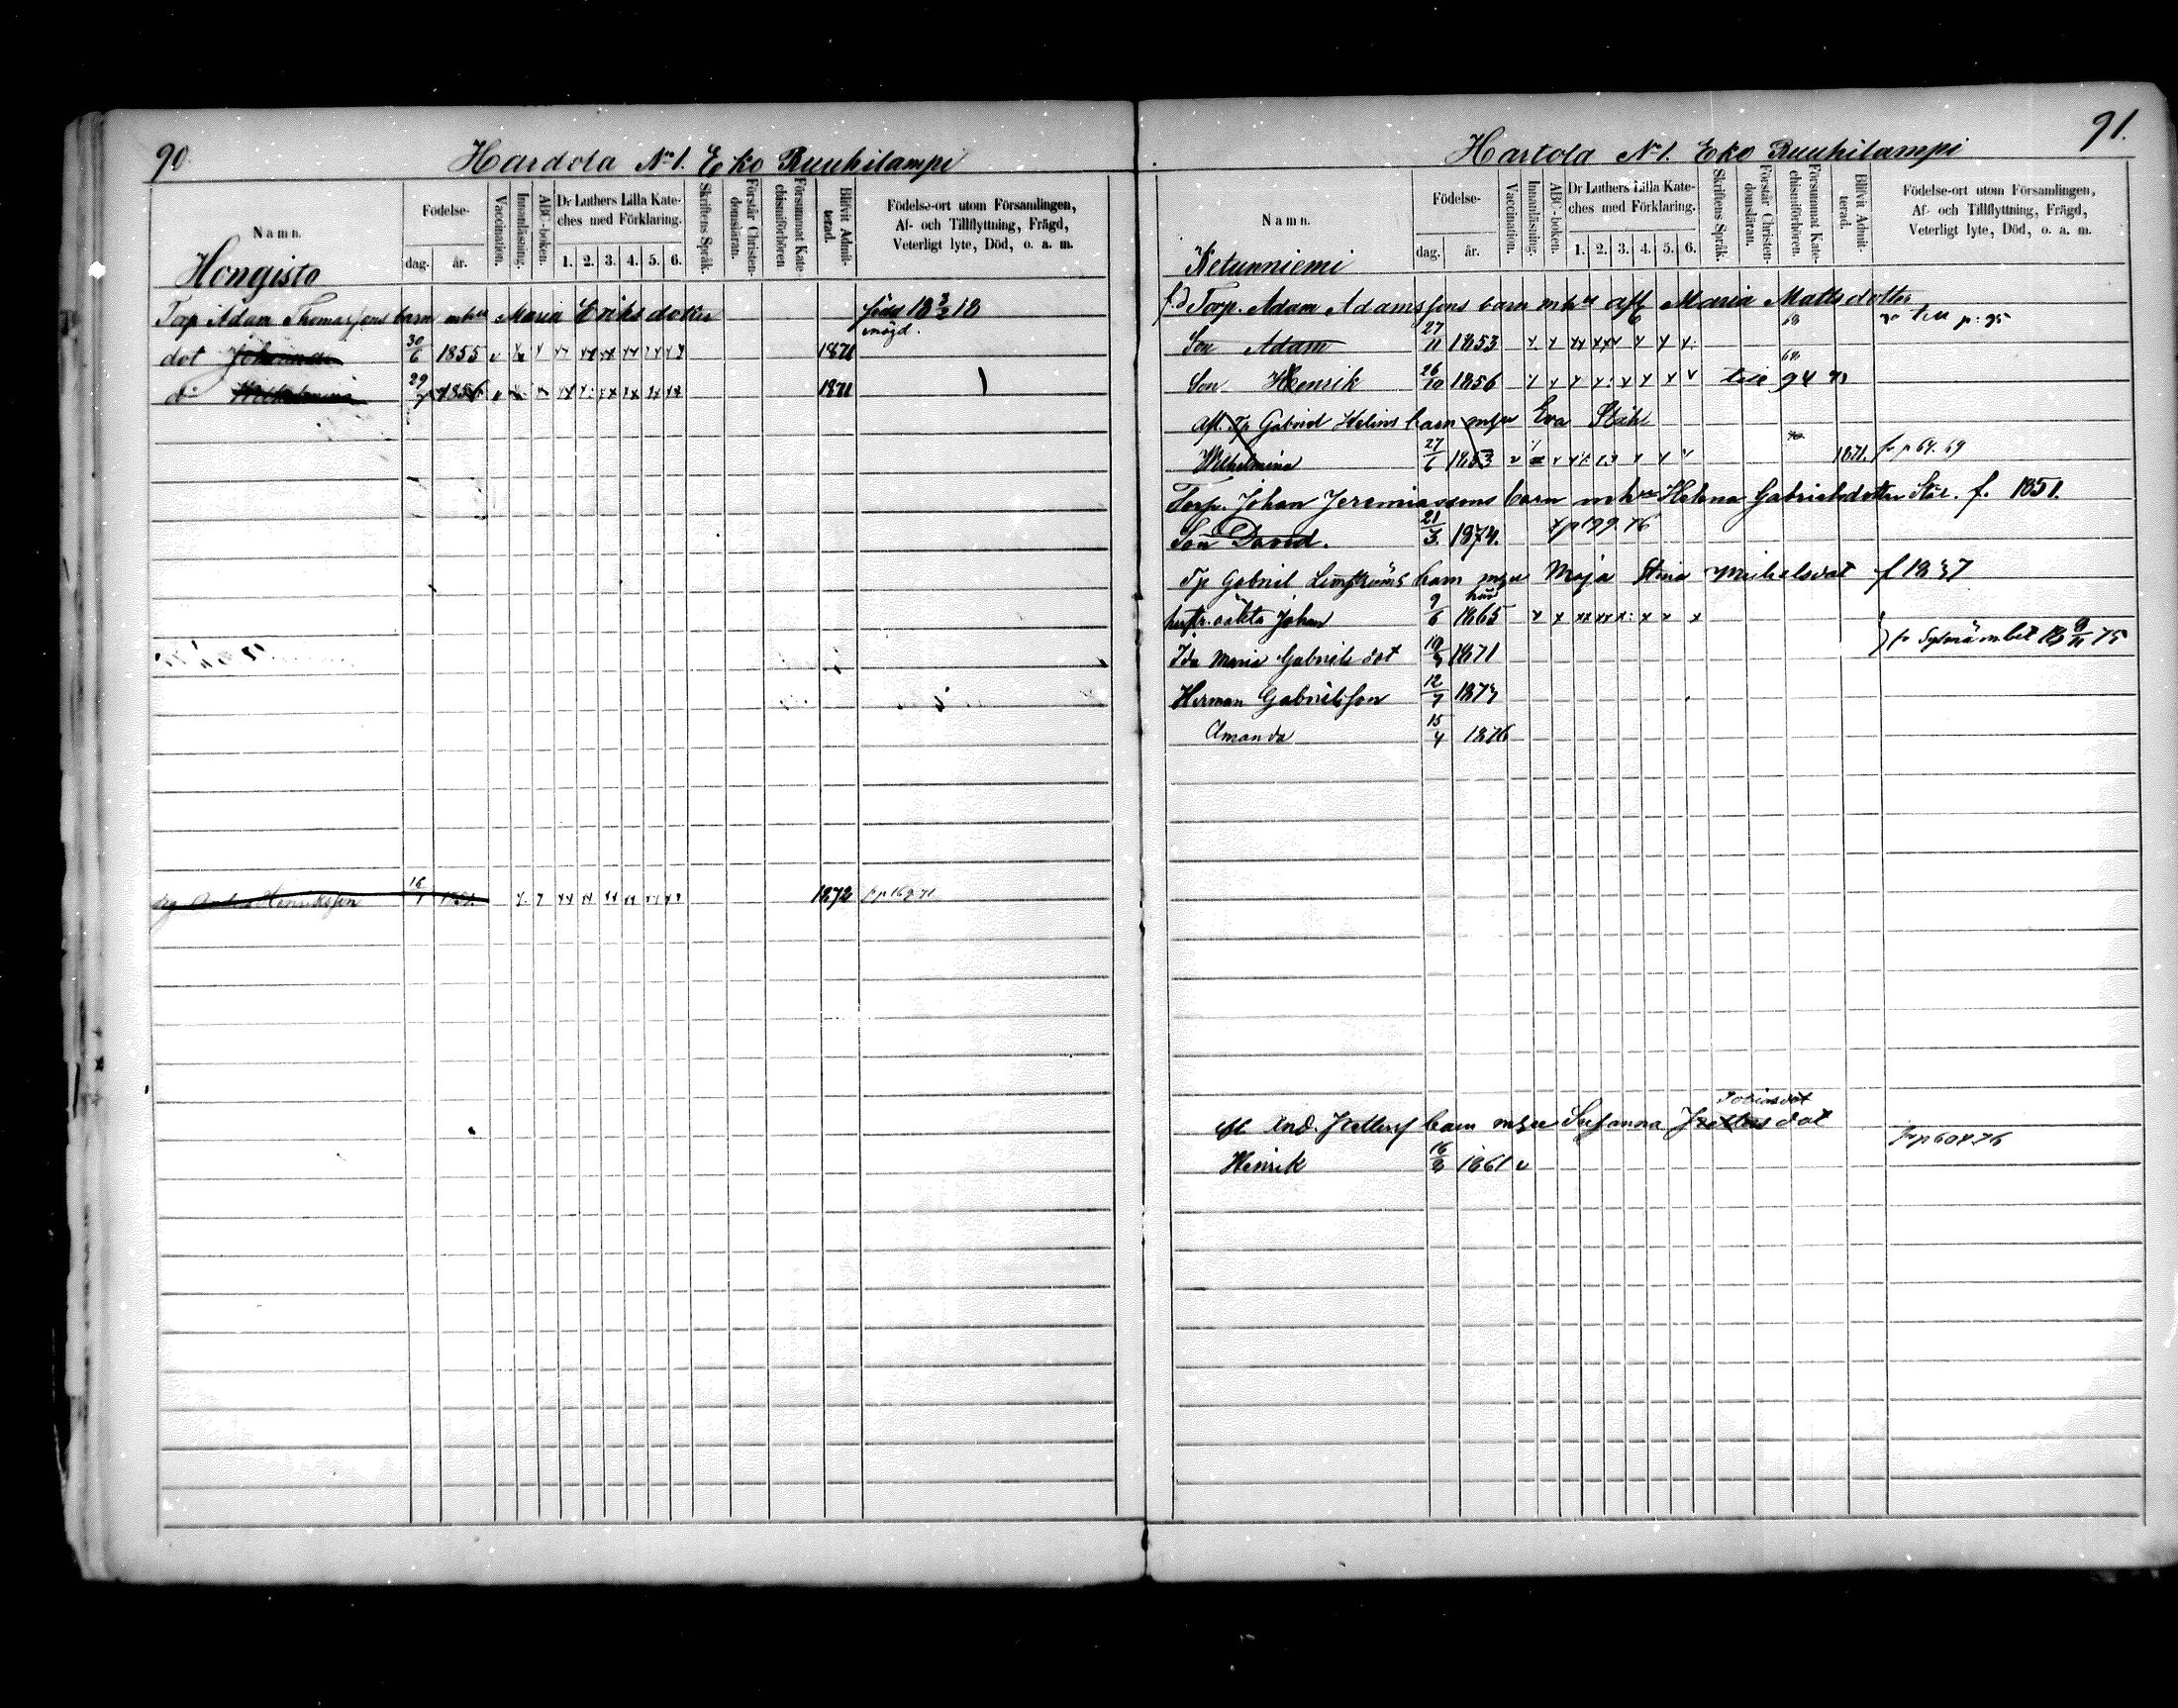 90.
Hardola No 1. Eko Ruuhilampi
Namn.
Födelse-
dag.
år.
Vaccination.
Innanläsning.
ABC-boken.
Dr Luthers Lilla Kate-
ches med Förklaring.
1. 2. 3. 4. 5. 6.
Skriftens Språk.
Förstår Christen-
domsläran.
Försummat Kate-
chismiförhören
Blifvit Admit-
terad.
Födelse-ort utom Församlingen,
Af- och Tillflyttning, Frägd,
Veterligt lyte, Död, o. a. m.
Hongisto
Torp Adam Thomassons barn mhu Maria Eriksdotter född 18 3/2 18
dot Johanna 30/6 1855 1871
do Wilhelmina 29/7 1856 1871
Henriksson 1872
91.
Hartola No 1. Eko Ruuhilampi
Namn.
Födelse-
dag.
år.
Vaccination.
Innanläsning.
ABC-boken.
Dr Luthers Lilla Kate-
ches med Förklaring.
1. 2. 3. 4. 5. 6.
Skriftens Språk.
Förstår Christen-
domsläran.
Försummat Kate-
chismiförhören.
Blifvit Admit-
terad.
Födelse-ort utom Församlingen,
Af- och Tillflyttning, Frägd,
Veterligt lyte, Död, o. a. m.
Ketunniemi
f.d Torp. Adam Adamssons barn mhu afl Maria Mattsdotter
till p: 95
Son Adam 27/11 1853 68
Son Henrik 26/10 1856 94
Afl. Tp Gabriel Helins barn mhu Eva Ståhl
Wilhelmina 27/6 1853 1871. fr p 64. 69
Torp. Johan Jeremiassons barn mhu Helena Gabrielsdotter f. 1851.
Son David. 21/3 1874.
Tp Gabriel barn mhu Maja Stina Mickelsdot f 1837
Johan 9/6 1865
Ida Maria Gabriels dot 1871
Herman Gabrielsson 12/7 1873
Amanda 15/4 1876
Tobiasdot
afl And. barn mhu Susanna dot
Henrik 1861